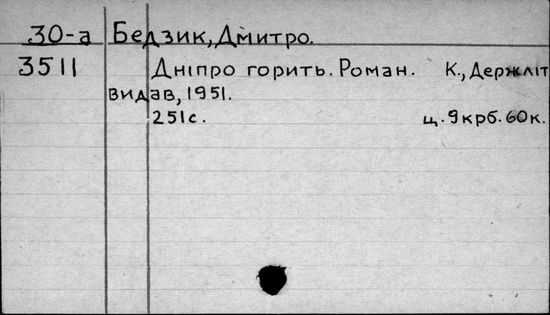 30-а Бедзик, Дмитро.
3511 Дніпро горить. Роман. К., Держліт
видав, 1951.
251с. ц. 9крб. 60к.